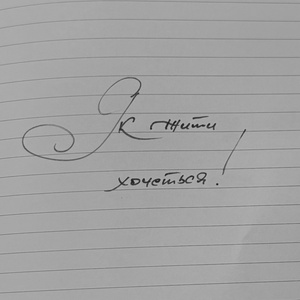 Як жити
хочеться!